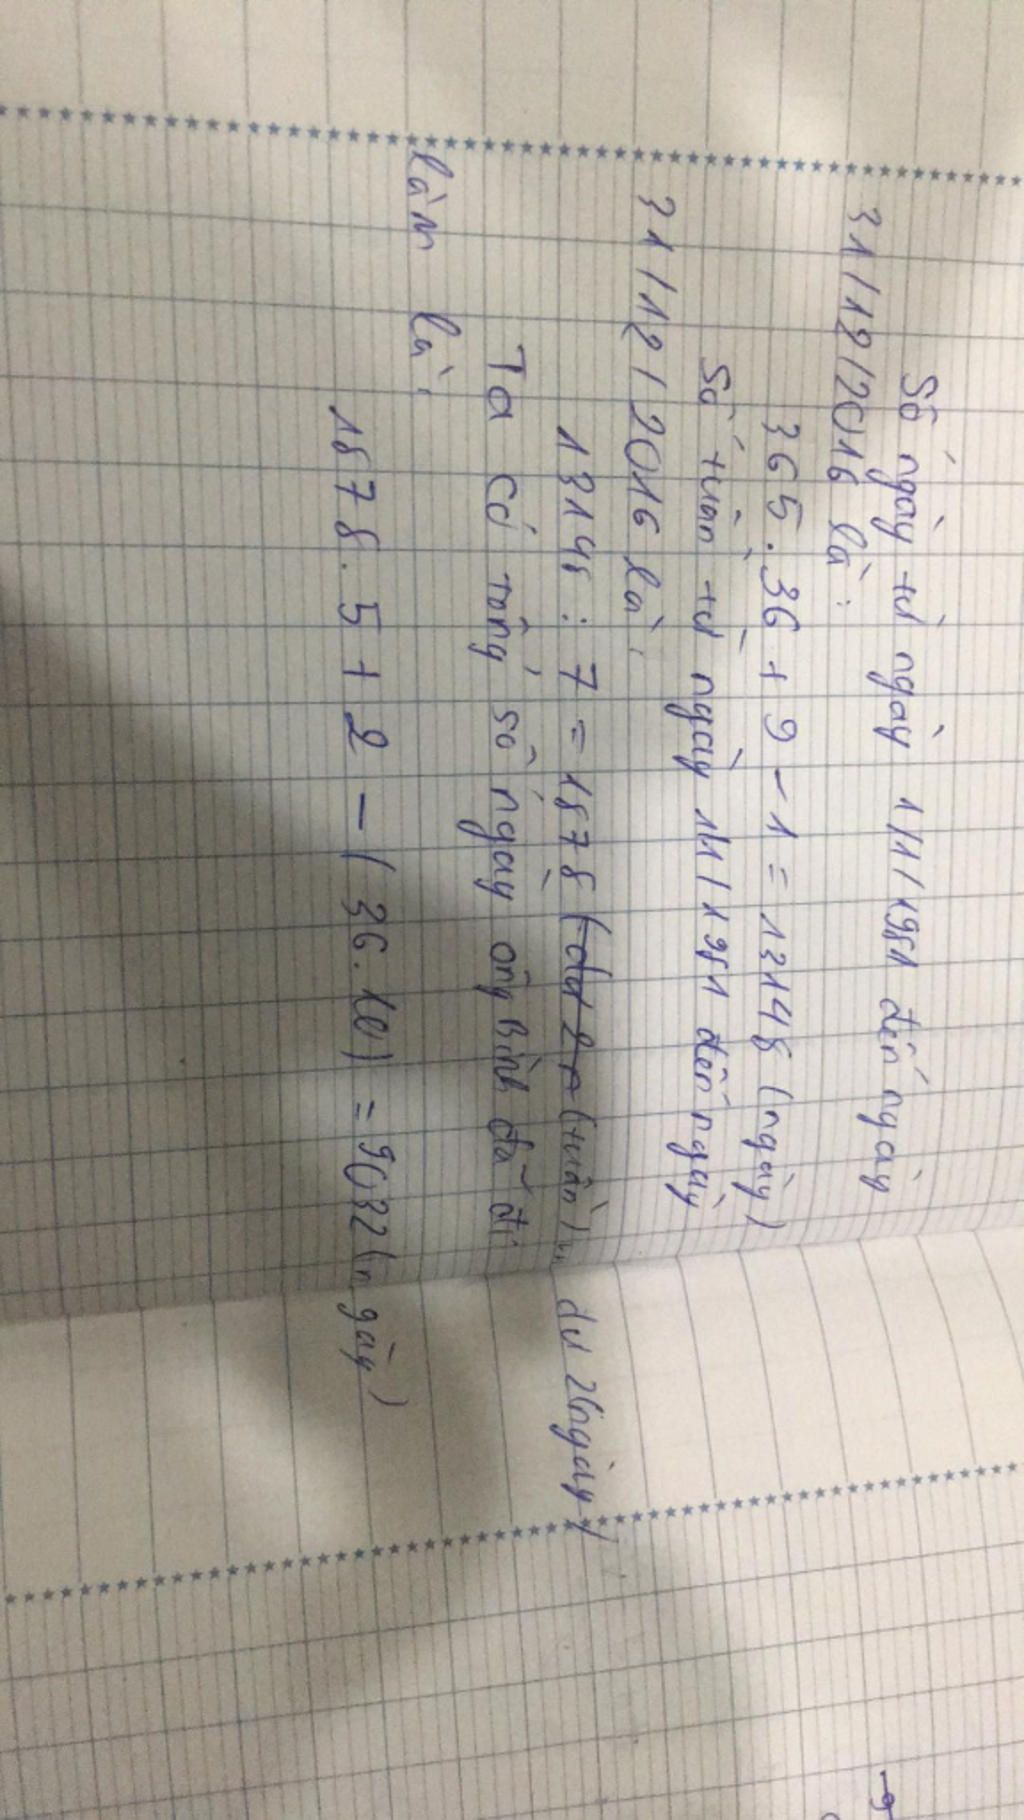 Số ngày từ ngày 1/1/1981 đến ngày
31/12/2016 là:
365.36 + 9 - 1 = 13148 (ngày)
Số tuần từ ngày 1/1/1981 đến ngày
31/12/2016 là:
13148 : 7 = 1878 (dư 2 (tuần) dư 2 (ngày)
Ta có tổng số ngày ông Bình đã đi
làm là:
1878.5 + 2 - (36.10) = 9032 (ngày)